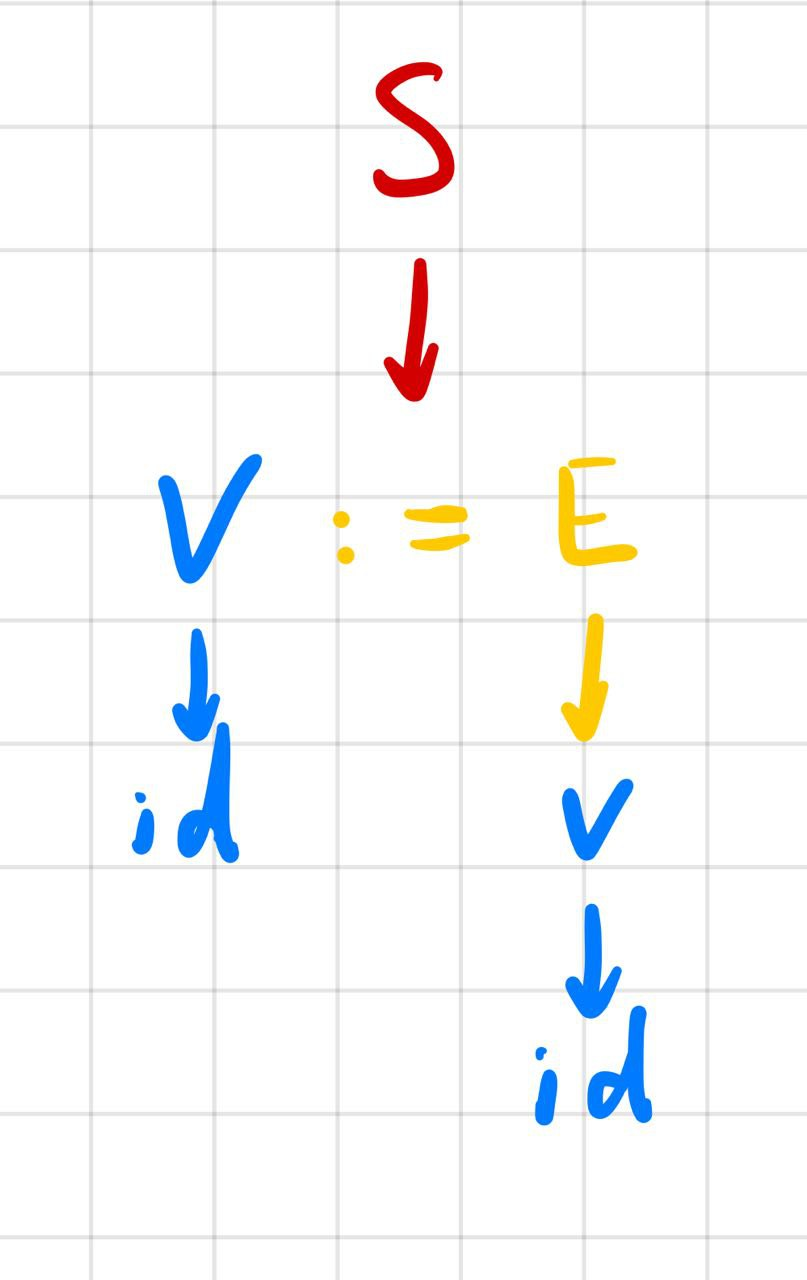 S
↓
V := E
↓ ↓
id V
↓
id